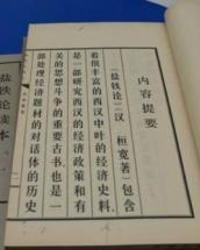 内容提要
《盐铁论》（汉 桓宽著）包含
着很丰富的西汉中叶的经济史料，
是一部研究西汉的经济政策和有
关的思想斗争的重要古书，也是一
部处理经济题材的对话体的历史
盐铁论读本